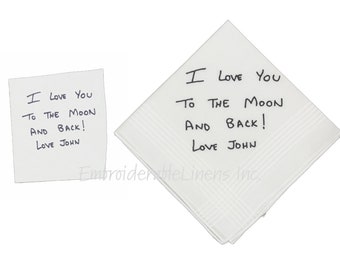 I Love You
To The Moon
And Back!
Love John
I Love You
To The Moon
And Back!
Love John
EmbroiderableLinens Inc.